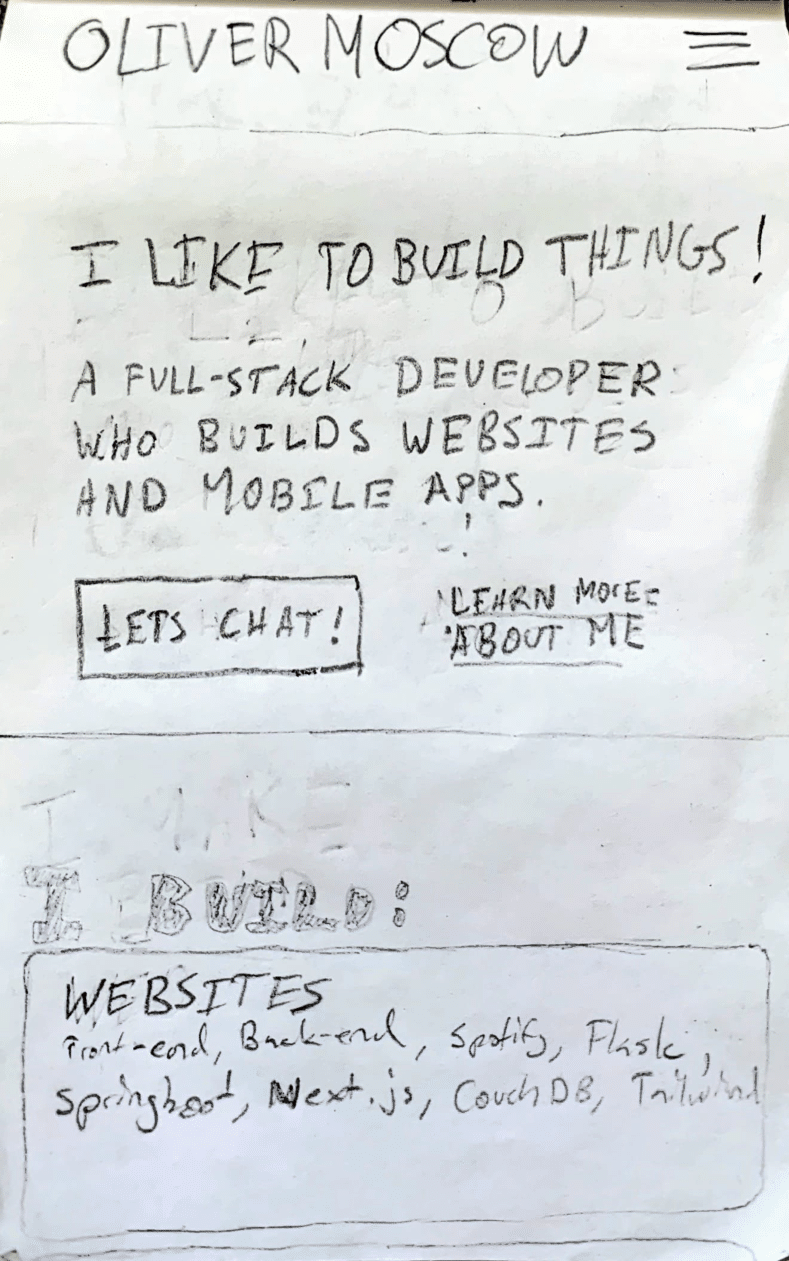 OLIVER MOSCOW
I LIKE TO BUILD THINGS!
A FULL-STACK DEVELOPER
WHO BUILDS WEBSITES
AND MOBILE APPS.
LETS CHAT!
LEARN MORE
ABOUT ME
I MAKE
I BUILD:
WEBSITES
Front-end, Back-end, Spotify, Flask,
Springboot, Next.js, CouchDB, Tailwind